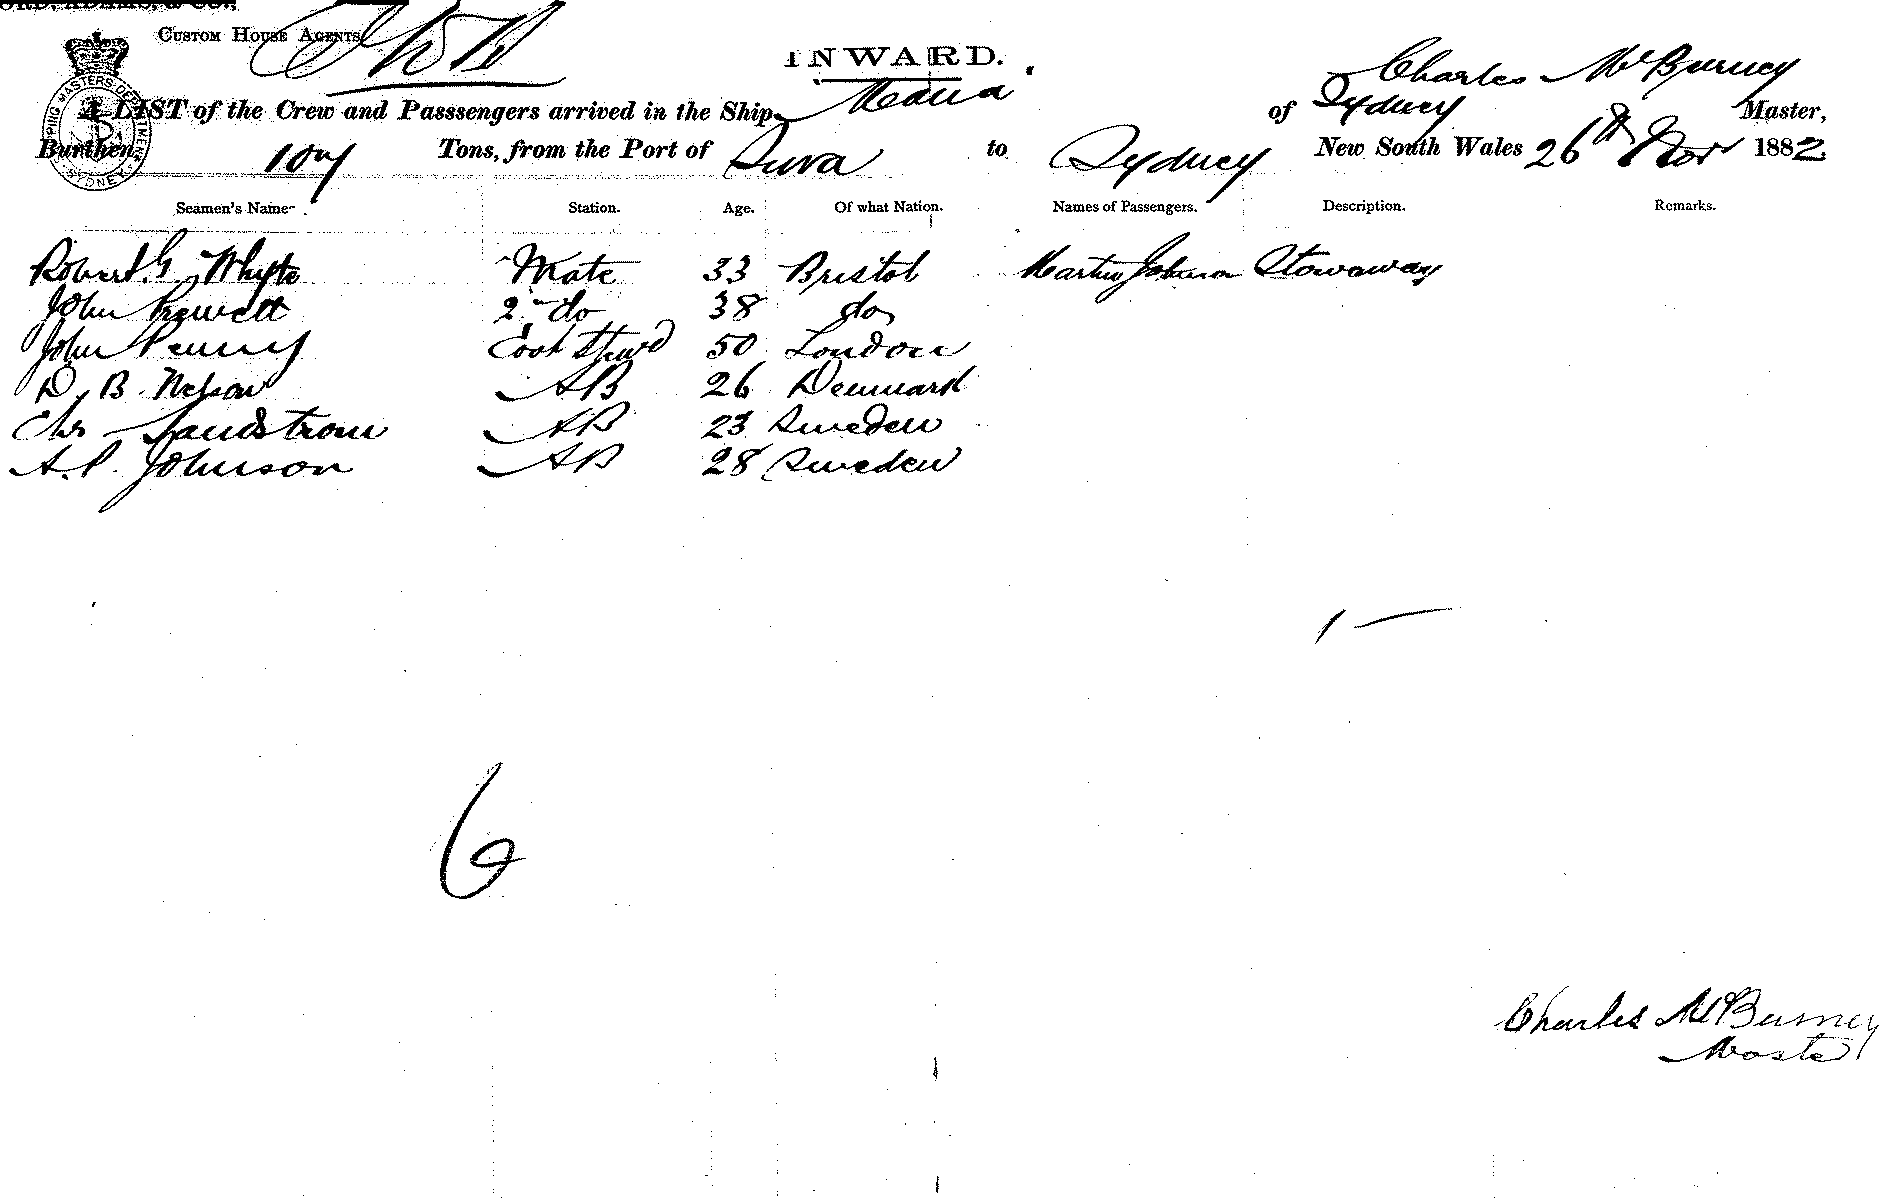 CUSTOM HOUSE AGENTS
INWARD.
Charles McBurney
A LIST of the Crew and Passsengers arrived in the Ship of Sydney Master,
Burthen 107 Tons, from the Port of Suva to Sydney New South Wales 26th Novr 1882
SHIPPING MASTERS DEPARTMENT SYDNEY
Seamen's Name Station. Age. Of what Nation. Names of Passengers. Description. Remarks.
Robert G Whyte Mate 33 Bristol Martin Johnson Stowaway
John Prewett 2nd do 38 do
John Penny Cook Stewd 50 London
D. B. Nelson AB 26 Denmark
Chs Sandstrom AB 23 Sweden
A. P. Johnson AB 28 Sweden
1 —
6
Charles McBurney
Master